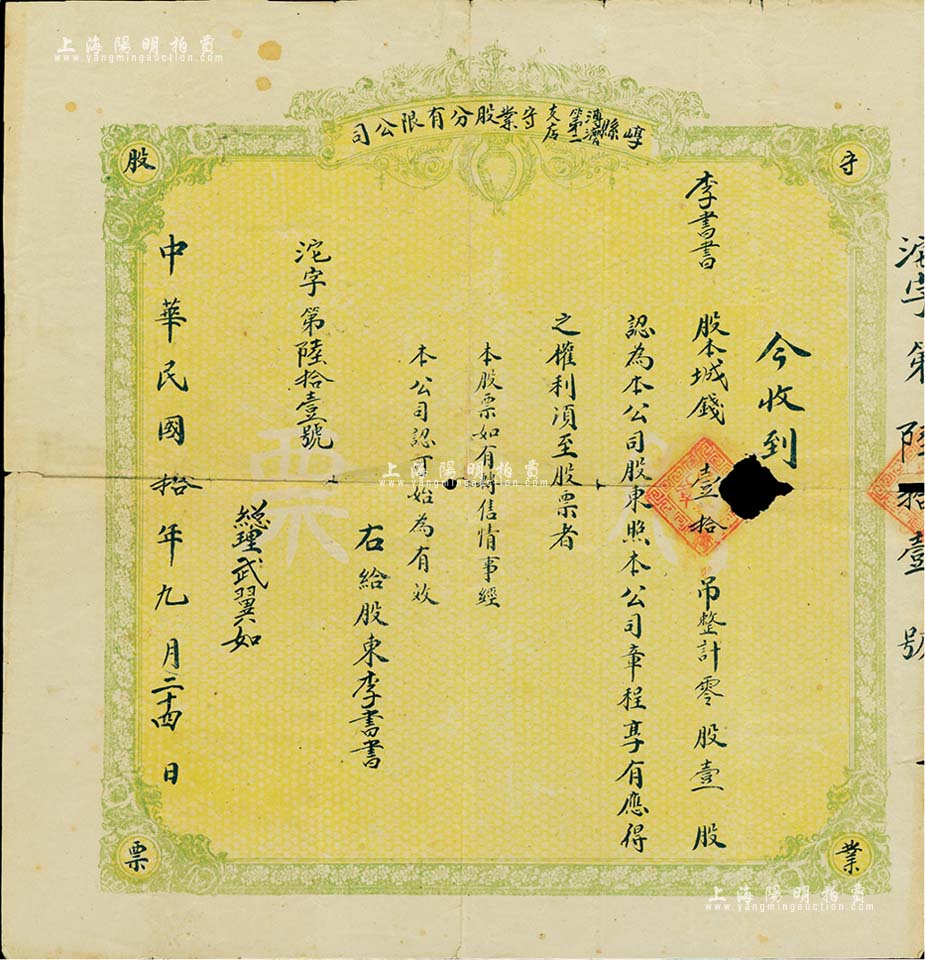 上海陽明拍賣
www.yangmingauction.com
崞縣溥濟第二支店守業股分有限公司
守
業
股
票
今收到
李書書 股本城錢壹拾吊整計零股壹股
認為本公司股東照本公司章程享有應得
之權利須至股票者
本股票如有轉售情事經
本公司認可始為有效
右給股東李書書
沱字第陸拾壹號
總理武翼如
中華民國拾年九月二十四日
沱字第陸拾壹號
上海陽明拍賣
www.yangmingauction.com
上海陽明拍賣
www.yangmingauction.com